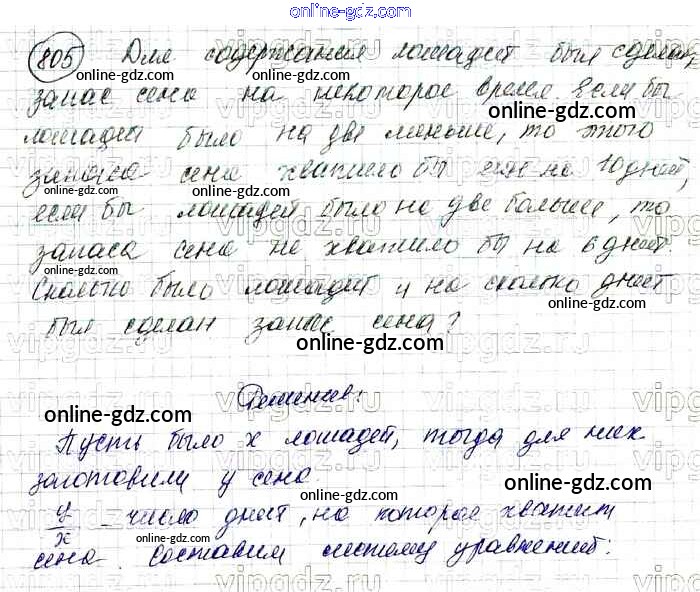 online-gdz.com
805 Для содержания лошадей был сделан
online-gdz.com online-gdz.com
запас сена на некоторое время. Если бы
online-gdz.com
лошадей было на две меньше, то этого
запаса сена хватило бы на 10 дней,
online-gdz.com online-gdz.com
если бы лошадей было на две больше, то
online-gdz.com
запаса сена не хватило бы на 6 дней
online-gdz.com
Сколько было лошадей и на сколько дней
online-gdz.com
был сделан запас сена?
online-gdz.com
Решение:
online-gdz.com
Пусть было x лошадей, тогда для них
online-gdz.com
заготовили y сена.
online-gdz.com
y/x - число дней, на которое хватит
online-gdz.com
сена. Составим систему уравнений:
online-gdz.com